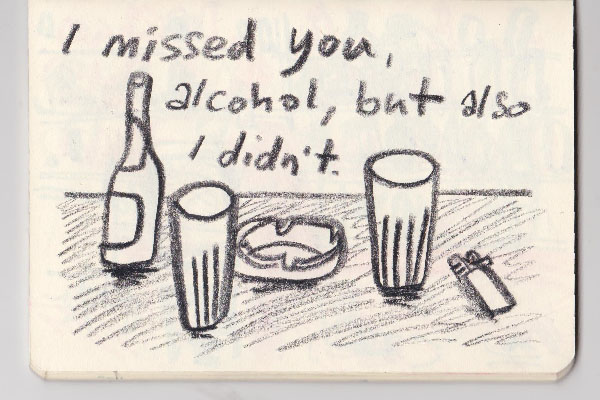 I missed you,
alcohol, but also
I didn't.